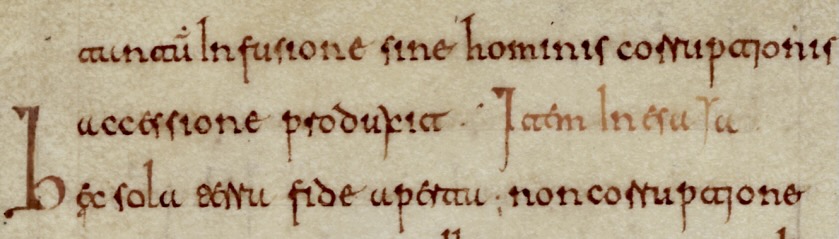 tantū Infusione sine hominis corruptionis
accessione produxit . Item In esaIa
hęc sola terra fide aperta ; non corruptione